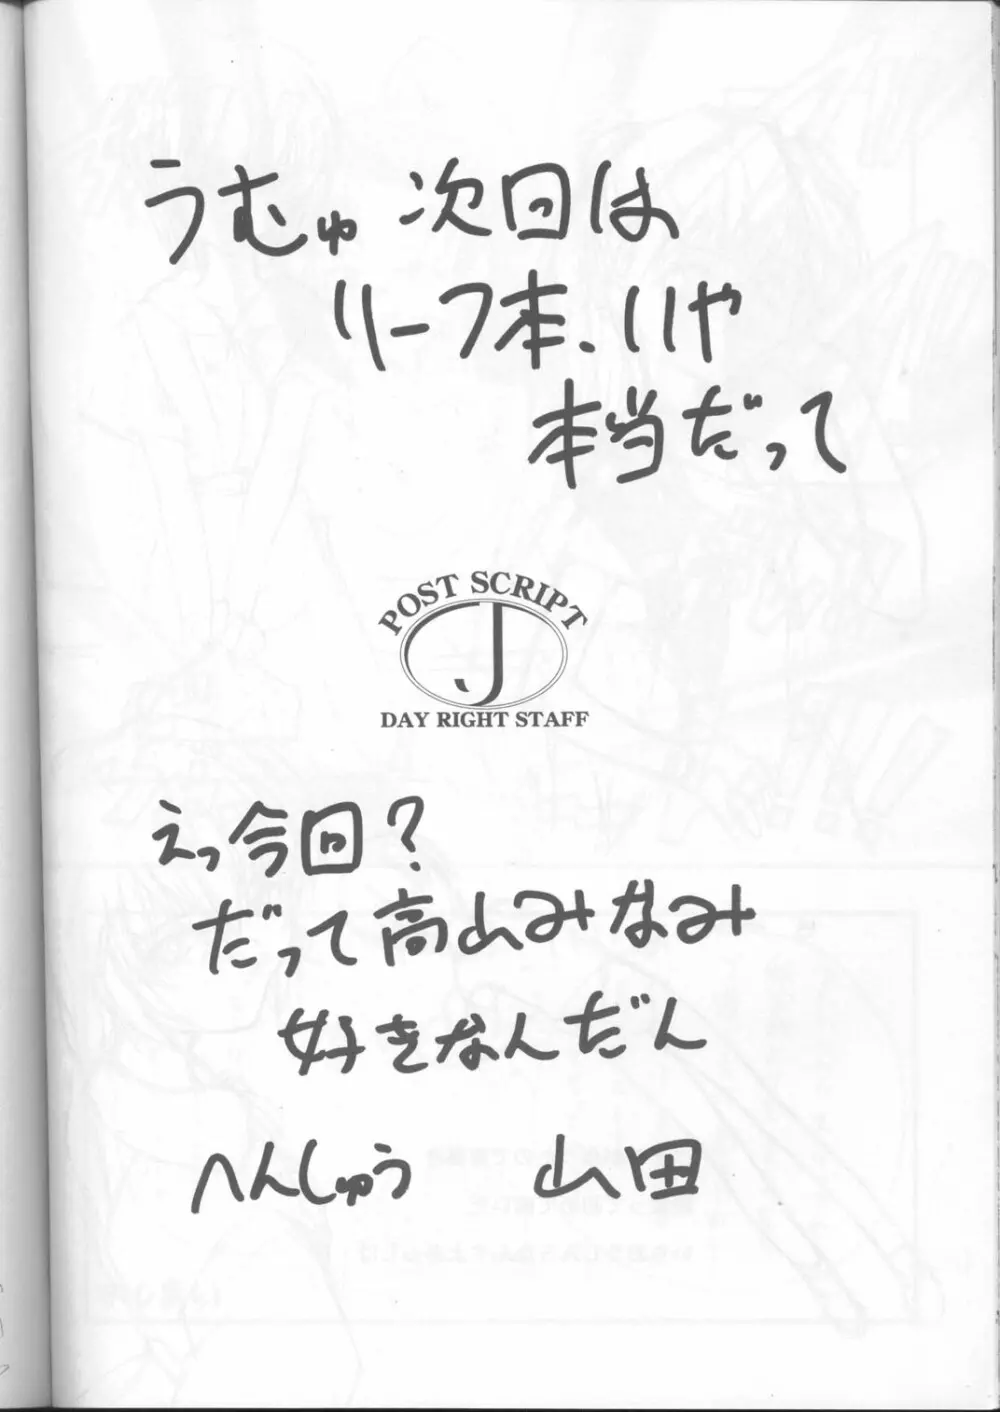 うむゅ 次回は
リーフ本、いや
本当だって
POST SCRIPT
J
DAY RIGHT STAFF
えっ今回?
だって高山みなみ
好きなんだん
へんしゅう 山田